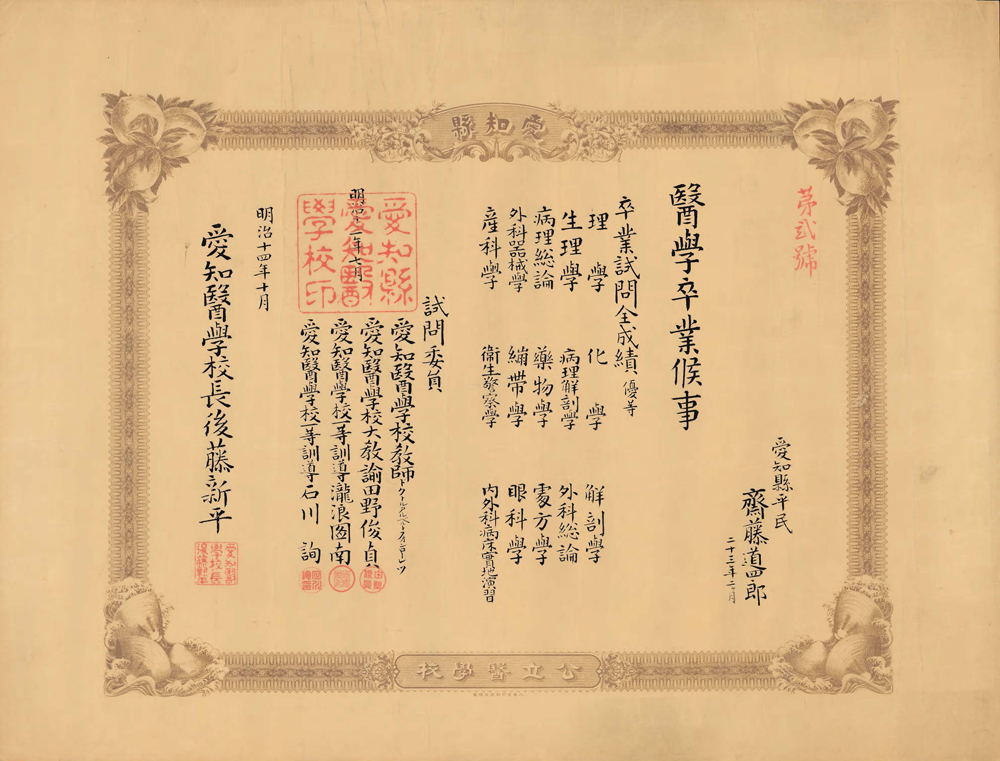 愛知縣
第貳號
愛知縣平民
齋藤道四郎
二十三年二月
醫學卒業候事
卒業試問全成績 優等
理學 化學 解剖學
生理學 病理解剖學 外科総論
病理総論 藥物學 處方學
外科器械學 繃帯學 眼科學
産科學 衞生警察學 内外科病床實地演習
試問委員
愛知醫學校教師
愛知醫學校大教諭田野俊貞
愛知醫學校一等訓導瀧浪圖南
愛知醫學校一等訓導石川詢
愛知縣愛知醫學校印
明治十四年十月
愛知醫學校長後藤新平
公立醫學校